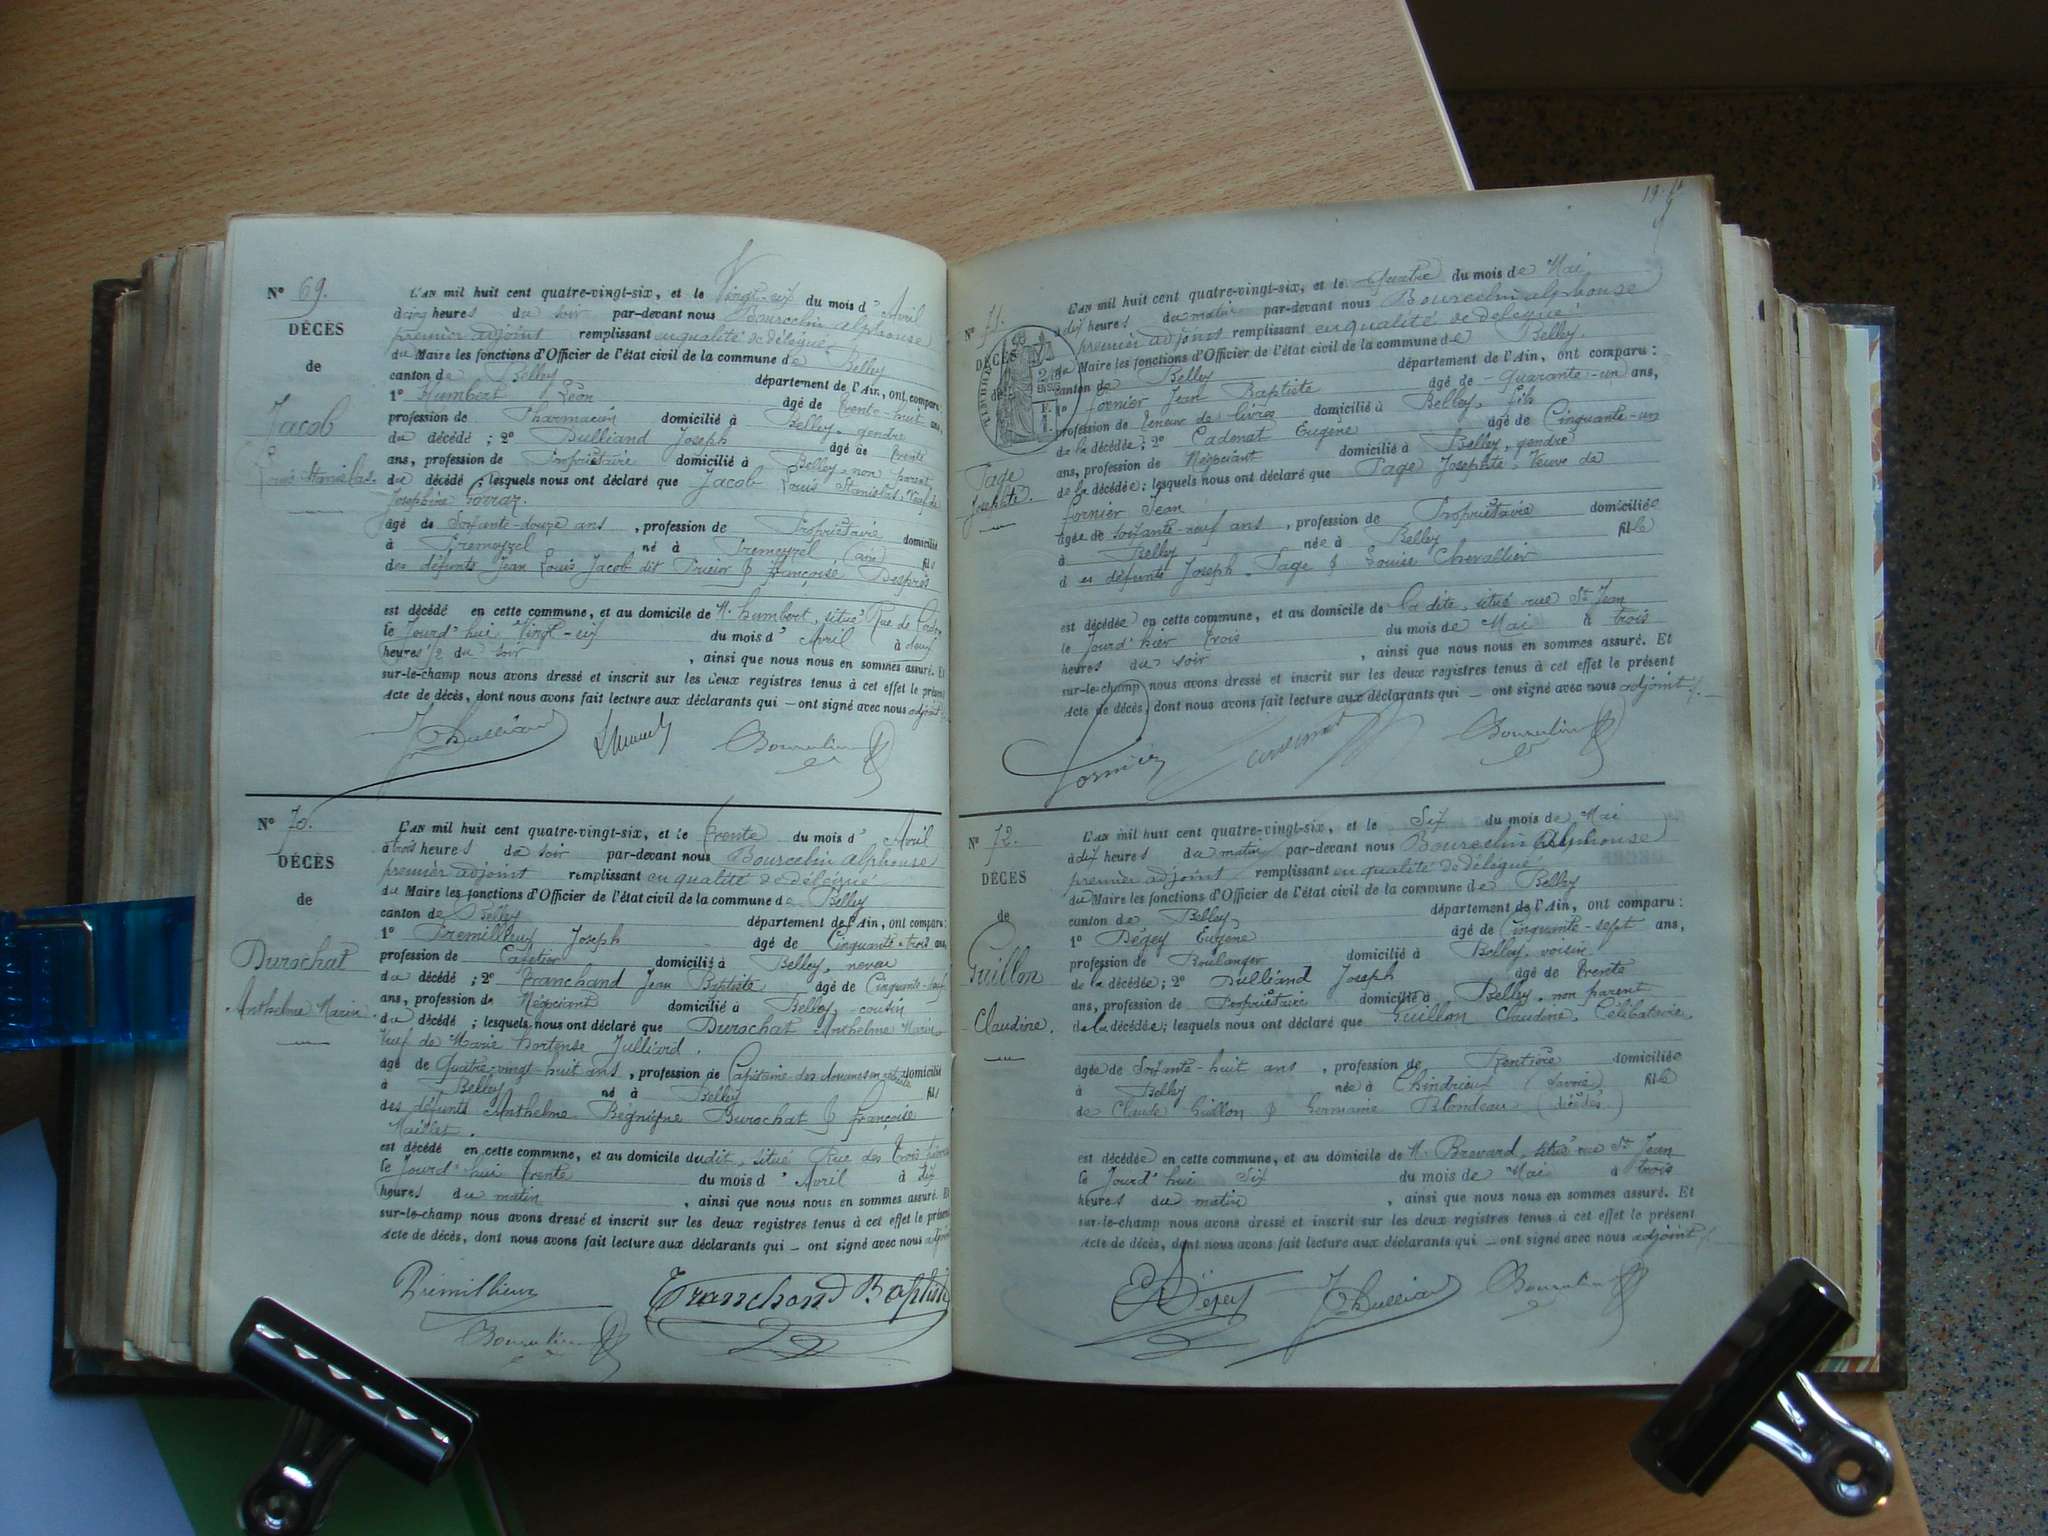 N° 69.
DÉCÈS
de
Jacob
Louis Stanislas.
L'AN mil huit cent quatre-vingt-six, et le Vingt-six du mois d' Avril
à cinq heures du soir par-devant nous Bourcelin Alphonse
premier adjoint remplissant en qualité de délégué
du Maire les fonctions d'Officier de l'état civil de la commune de Belley
canton de Belley département de l'Ain, ont comparu :
1° Humbert Léon âgé de trente-huit ans,
profession de Pharmacien domicilié à Belley, gendre
du décédé ; 2° Dulliand Joseph âgé de trente
ans, profession de Propriétaire domicilié à Belley, non parent
du décédé ; lesquels nous ont déclaré que Jacob Louis Stanislas, Veuf de
Josephine
âgé de Soixante-douze ans , profession de Propriétaire domicilié
à Premeyzel né à Premeyzel (ain) fils
des défunts Jean Louis Jacob dit Prieur & françoise Desprès
est décédé en cette commune, et au domicile de M. humbert, situé Rue de
le Jourd'hui Vingt-six du mois d' Avril à deux
heures 1/2 du soir , ainsi que nous nous en sommes assuré. Et
sur-le-champ nous avons dressé et inscrit sur les deux registres tenus à cet effet le présent
Acte de décès, dont nous avons fait lecture aux déclarants qui – ont signé avec nous adjoint
JDulliand Bourcelin
N° 70.
DÉCÈS
de
Durochat
Anthelme Marin.
L'AN mil huit cent quatre-vingt-six, et le trente du mois d' Avril
à trois heures du soir par-devant nous Bourcelin Alphonse
premier adjoint remplissant en qualité de délégué
du Maire les fonctions d'Officier de l'état civil de la commune de Belley
canton de Belley département de l'Ain, ont comparu :
1° Premillieux Joseph âgé de Cinquante-trois ans,
profession de domicilié à Belley, neveu
du décédé ; 2° Tranchand Jean Baptiste âgé de Cinquante-neuf
ans, profession de Négociant domicilié à Belley, cousin
du décédé ; lesquels nous ont déclaré que Durochat Anthelme Marin
Veuf de Marie hortense Julliard.
âgé de Quatre-vingt-huit ans , profession de Capitaine des douanes en retraite domicilié
à Belley né à Belley fils
des défunts Anthelme Bégnigne Durochat & françoise
Maillet.
est décédé en cette commune, et au domicile dudit, situé Rue des trois
le Jourd'hui trente du mois d' Avril à dix
heures du matin , ainsi que nous nous en sommes assuré. Et
sur-le-champ nous avons dressé et inscrit sur les deux registres tenus à cet effet le présent
Acte de décès, dont nous avons fait lecture aux déclarants qui – ont signé avec nous adjoint
Prémillieux Tranchand Baptiste
Bourcelin
N° 71.
DÉCÈS
de
Page
Josephte.
L'AN mil huit cent quatre-vingt-six, et le Quatre du mois de Mai
à dix heures du matin par-devant nous Bourcelin alphonse
premier adjoint remplissant en qualité de délégué
du Maire les fonctions d'Officier de l'état civil de la commune de Belley.
canton de Belley département de l'Ain, ont comparu :
1° fornier Jean Baptiste âgé de quarante-un ans,
profession de teneur de livres domicilié à Belley, fils
de la décédée ; 2° Cadenat Eugène âgé de Cinquante-un
ans, profession de Négociant domicilié à Belley, gendre
de la décédée ; lesquels nous ont déclaré que Page Josephte, Veuve de
fornier Jean
âgée de soixante-neuf ans , profession de Propriétaire domiciliée
à Belley née à Belley fille
des défunts Joseph Page & Louise Chevallier
est décédée en cette commune, et au domicile de la dite, situé rue St Jean
le Jourd'hier trois du mois de Mai à trois
heures du soir , ainsi que nous nous en sommes assuré. Et
sur-le-champ nous avons dressé et inscrit sur les deux registres tenus à cet effet le présent
Acte de décès, dont nous avons fait lecture aux déclarants qui – ont signé avec nous adjoint
Fornier Cadenat Bourcelin
N° 72.
DÉCÈS
de
Guillon
Claudine.
L'AN mil huit cent quatre-vingt-six, et le Six du mois de Mai
à dix heures du matin par-devant nous Bourcelin Alphonse
premier adjoint remplissant en qualité de délégué
du Maire les fonctions d'Officier de l'état civil de la commune de Belley
canton de Belley département de l'Ain, ont comparu :
1° Dégey Eugène âgé de Cinquante-sept ans,
profession de Boulanger domicilié à Belley, voisin
de la décédée ; 2° Dulliand Joseph âgé de trente
ans, profession de Propriétaire domicilié à Belley, non parent
de la décédée ; lesquels nous ont déclaré que Guillon Claudine, Célibataire,
âgée de Soixante-huit ans , profession de Rentière domiciliée
à Belley née à Chindrieux (Savoie) fille
de Claude Guillon & Germaine Blondeau (décédés)
est décédée en cette commune, et au domicile de M. Brevard, situé rue St Jean
le Jourd'hui Six du mois de Mai à trois
heures du matin , ainsi que nous nous en sommes assuré. Et
sur-le-champ nous avons dressé et inscrit sur les deux registres tenus à cet effet le présent
Acte de décès, dont nous avons fait lecture aux déclarants qui – ont signé avec nous adjoint
EDégey JDulliand Bourcelin